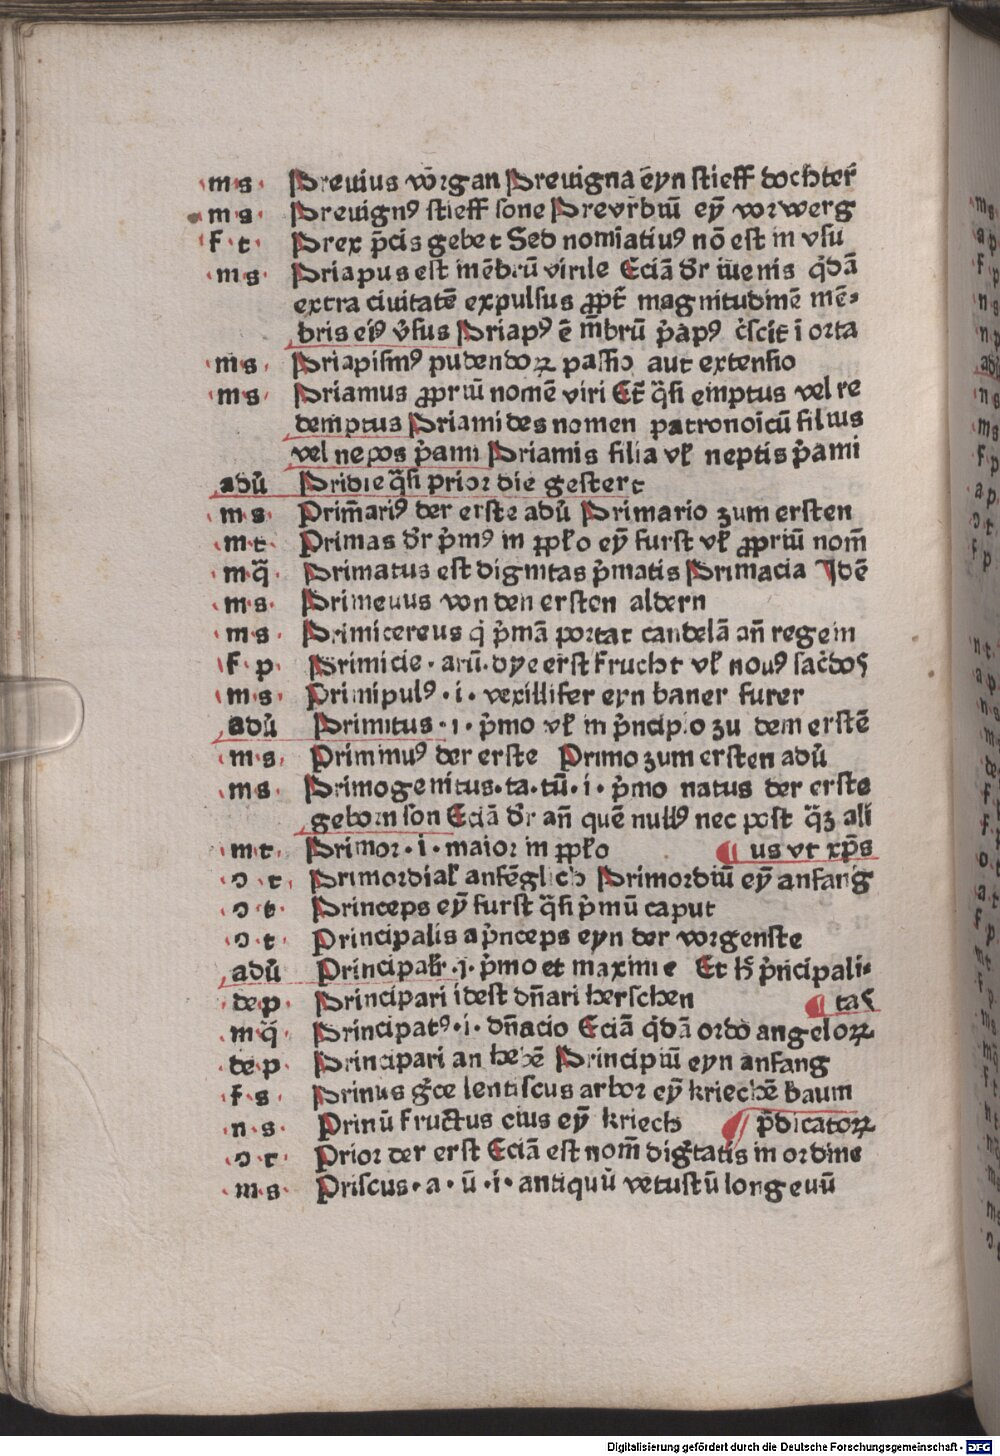 m s Preuius vorgan Preuigna ēyn stieff dochter̄
m s Preuignꝰ stieff sone Preurbiū eȳ vorwerg
f t Prex p̄cis gebet Sed nomīatiuꝰ nō est in vsu
m s Priapus est mēbrū virile Eciā dr̄ iuenis q̇dā
extra ciuitatē expulsus ꝓpt̄ magnitudinē mē⸗
bris eiꝰ v̓sus Priapꝰ ē m̄brū p̓apꝰ c̄scit ī orta
m s Priapismꝰ pudendoꝝ passio aut extensio
m s Priamus ꝓpriū nomē viri Et̄ q̄si emptus vel re
demptus Priamides nomen patronoicū filius
vel nepos p̓ami Priamis filia vł neptis p̓ami
adū Pridie q̄si prior die gestert
m s Prim̄ariꝰ der erste adū Primario zum ersten
m t Primas dr̄ p̓mꝰ in ꝓpło eȳ furst vł ꝓpriū nom̄
m q̄ Primatus est dignitas p̓matis Primacia Idē
m s Primeuus von den ersten aldern
m s Primicereus q̇ p̓mā portat candelā an̄ regem
f p Primicie · arū · dye erst frucht vł nouꝰ sac̄dos
m s Primipulꝰ · i · vexillifer eyn baner furer
adū Primitus · i · p̓mo vł in p̓ncipio zu dem erstē
m s Primmuꝰ der erste Primo zum ersten adū
m s Primogenitus · ta · tū · i · p̓mo natus der erste
geborn son Eciā dr̄ an̄ quē nullꝰ nec post q̄ʒ ali
m t Primor · i · maior in ꝓpło ¶ us vt xp̄s
ɔ t Primordiał anfēglich Primordiū eȳ anfang
ɔ t Princeps eȳ furst q̄si p̓mū caput
ɔ t Principalis a p̓nceps eyn der vorgenste
adū Principalr̄ · i · p̓mo et maxime Et h̄ p̓ncipali⸗
de p Principari idest dn̄ari herschen ¶ tas
m q̄ Principatꝰ · i · dn̄acio Eciā q̇dā ordo angeloꝝ
de p Principari an hebē Principiū eyn anfang
f s Prinus gr̄ce lentiscus arbor eȳ kriechē baum
n s Prinū fructus eius eȳ kriech ¶ p̄dicatoꝝ
ɔ t Prior der erst Eciā est nom̄ dig̓tatis in ordine
m s Priscus · a · ū · i · antiquū vetustū longeuū
Digitalisierung gefördert durch die Deutsche Forschungsgemeinschaft - DFG